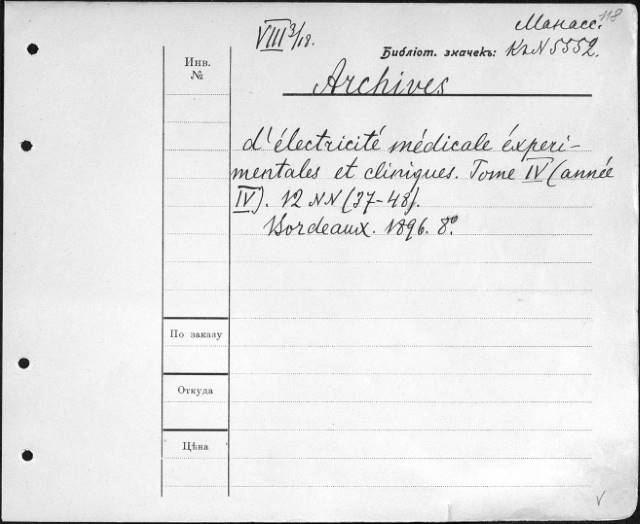 118
Манасс.
VIII 3/18.
Библіот. значекъ: КкN5552.
Инв.
№
Archives
d'électricité médicale éxperi-
mentales et cliniques. Tome IV (année
IV). 12 NN (37-48).
Bordeaux. 1896. 8º.
По заказу
Откуда
Цѣна